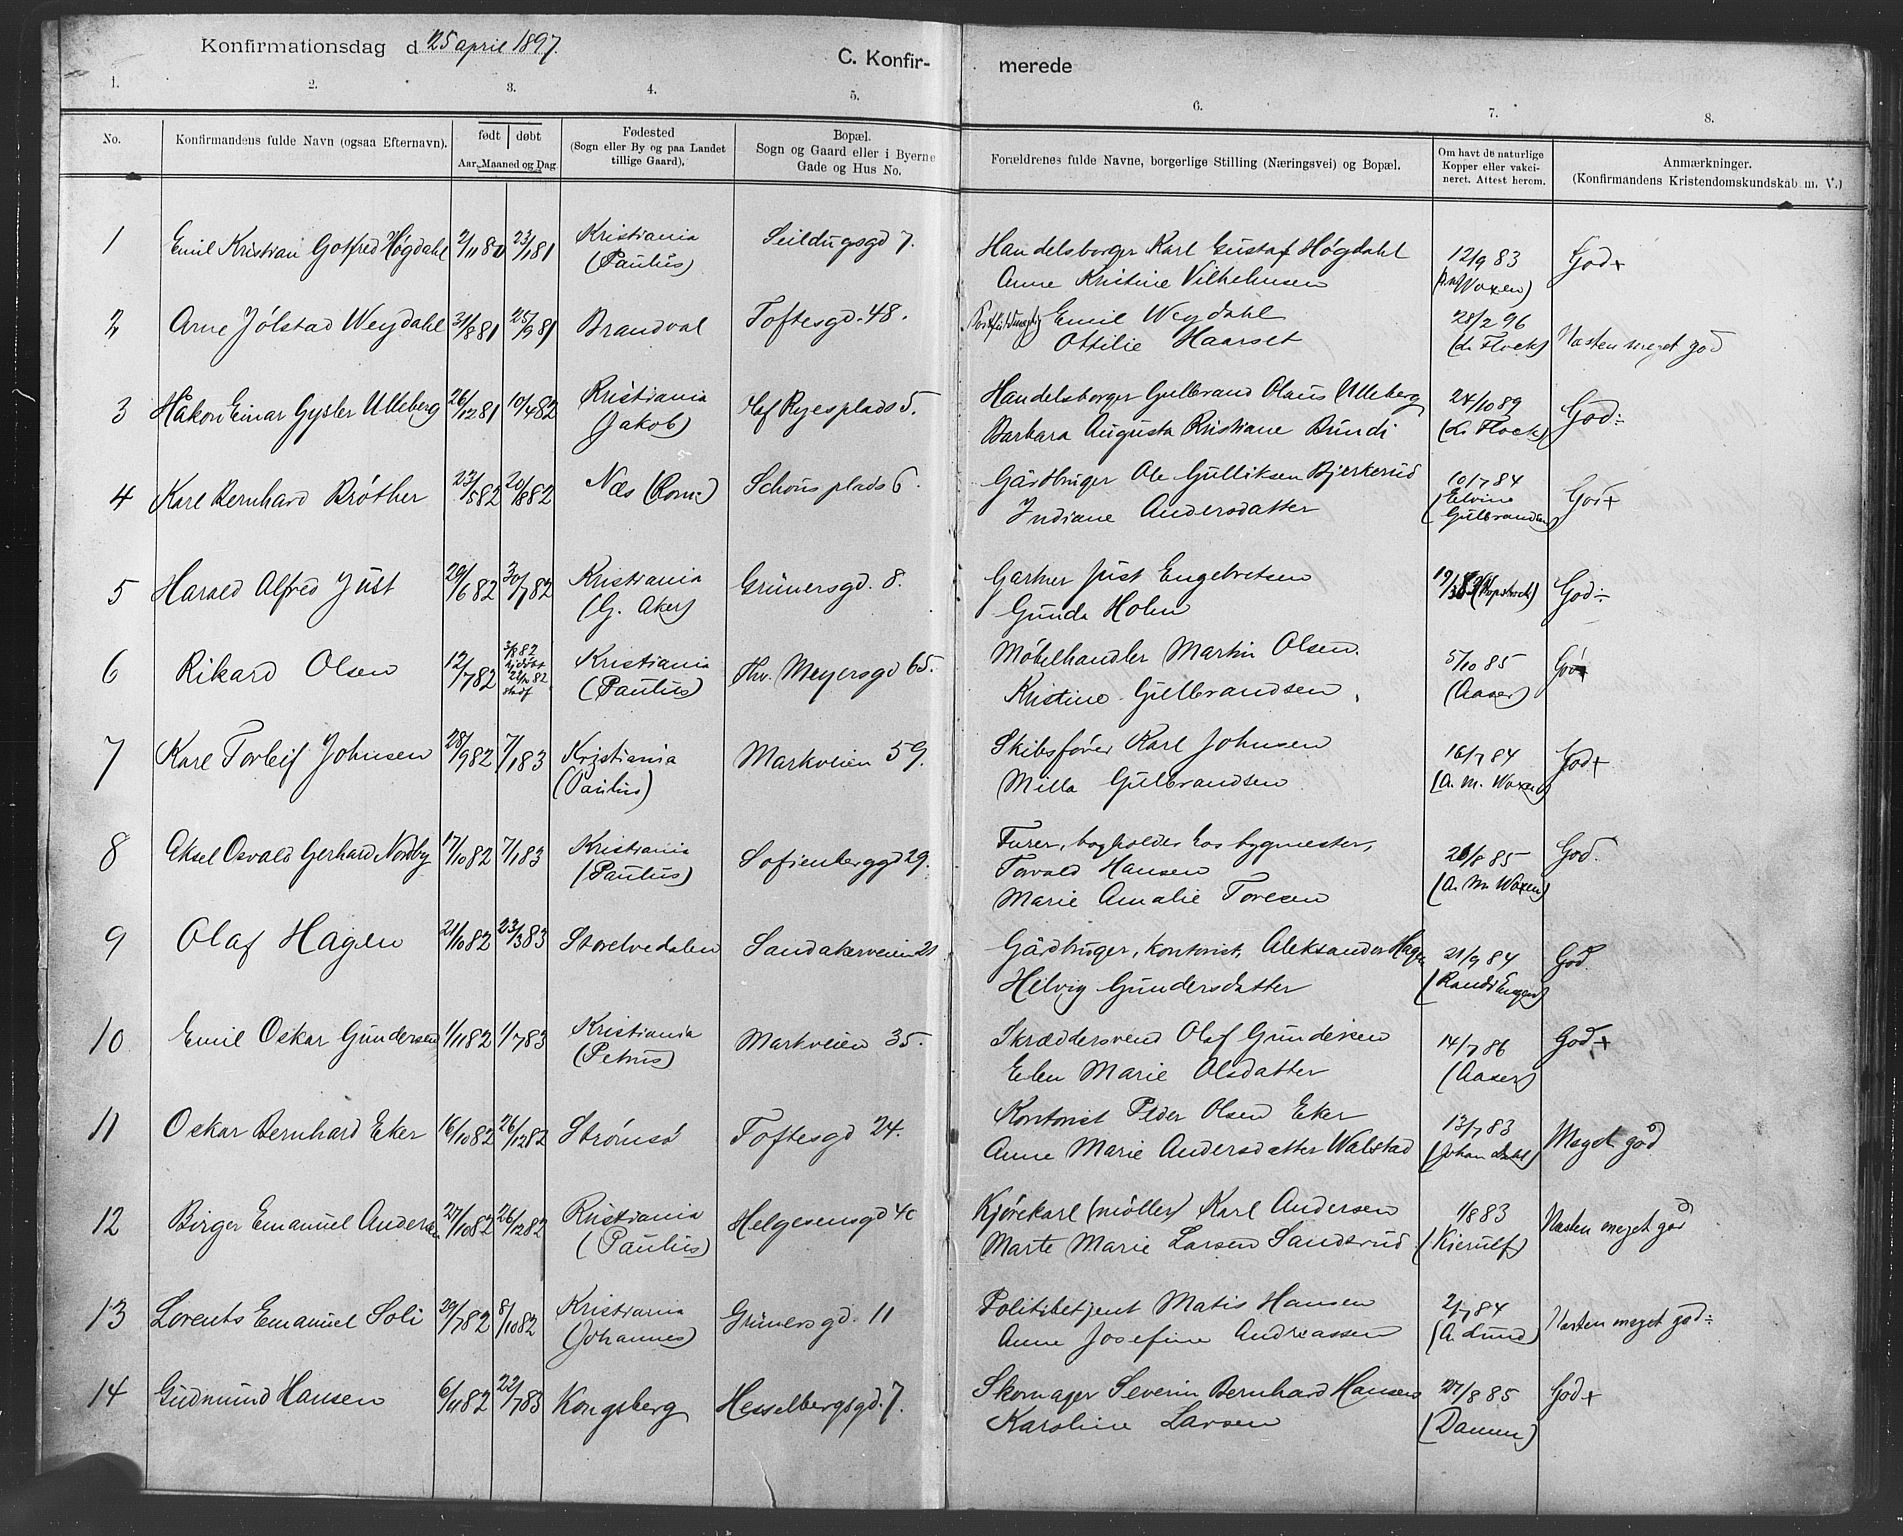 Konfirmationsdag d 25 april 1897.
C. Konfir- merede
1. 2. 3. 4. 5. 6. 7. 8.
No.
Konfirmandens fulde Navn (ogsaa Efternavn).
født døbt
Aar, Maaned og Dag
Fødested
(Sogn eller By og paa Landet
tillige Gaard).
Bopæl.
Sogn og Gaard eller i Byerne
Gade og Hus No.
Forældrenes fulde Navne, borgerlige Stilling (Næringsvei) og Bopæl.
Om havt de naturlige
Kopper eller vakci-
neret. Attest herom.
Anmærkninger.
(Konfirmandens Kristendomskundskab m. V.)
1 Emil Kristian Gotfred Høgdahl 2/11 80 23/1 81 Kristiania Seildugsgd 7. Handelsborger Karl Gustaf Høgdahl 12/9 83 God +
(Paulus) Anne Kristine Vilhelmsen (A M Woxen)
2 Arne Jølstad Weydahl 31/8 81 25/9 81 Brandval Toftesgd. 48. Emil Weydahl 28/2 96 Næsten meget god
Ottilie Haarset (L. Flock)
3 Håkon Einar Gysler Ulleberg 26/12 81 10/4 82 Kristiania Olaf Ryesplads 5. Handelsborger Gulbrand Olaus Ulleberg 24/10 89 God ÷
(Jakob) Barbara Augusta Kristiane Bundi (L. Flock)
4 Karl Bernhard Brøther 23/5 82 20/8 82 Næs (Rom:) Schous plads 6. Gårdbruger Ole Gulliksen Bjerkerud 10/7 84 God +
Indiane Andersdatter (Elvine
Gulbrandsen)
5 Harald Alfred Just 29/6 82 30/7 82 Kristiania Grünersgd. 8. Gartner Just Engebretsen God ÷
(G. Aker) Gunda Holm
6 Rikard Olsen 12/7 82 3/8 82 Kristiania Thv. Meyersgd 65. Møbelhandler Martin Olsen. 5/10 85 God
(Paulus) Kristine Gulbrandsen. (Aaser)
7 Karl Torleif Johnsen 28/9 82 7/1 83 Kristiania Markveien 59. Skibsfører Karl Johnsen 16/7 84 God +
(Paulus) Milla Gulbrandsen (A. M. Woxen)
8 Aksel Osvald Gerhard Nordby 17/10 82 7/1 83 Kristiania Sofienberggd 29. Murer, bogholder hos bygmester, 26/8 85 God.
(Paulus) Torvald Hansen (A. M. Woxen)
Marie Amalie Toresen
9 Olaf Hagen 21/10 82 23/3 83 Storelvedalen Sandakerveien 21 Gårdbruger, kontorist, Aleksander Hagen 21/9 84 God
Helvig Gundersdatter (Randi Engen)
10 Emil Oskar Gundersen 1/11 82 1/7 83 Kristiania Markveien 35. Skræddersvend Olaf Gundersen 14/7 86 God +
(Petrus) Elen Marie Olsdatter (Aaser)
11 Oskar Bernhard Eker 16/10 82 26/12 82 Strømsø Toftesgd 24. Kontorist Peder Olsen Eker 13/7 83 Meget god
Anne Marie Andersdatter Walstad (Johan Dahl)
12 Birger Emanuel Andersen 27/10 82 26/12 82 Kristiania Helgesensgd 40 Kjørekarl (møller) Karl Andersen 1/8 83 Næsten meget god
(Paulus) Marte Marie Larsen Sandsrud (Kierulf)
13 Lorents Emanuel Soli 29/7 82 8/10 82 Kristiania Grünersgd. 11 Politibetjent Matis Hansen 2/7 84 Næsten meget god ÷
(Johannes) Anne Josefine Andreassen (A. Lund)
14 Gudmund Hansen 6/11 82 22/7 83 Kongsberg Hesselbergsgd. 7. Skomager Severin Bernhard Hansen 27/8 85 God +
Karoline Larsen (Damm)